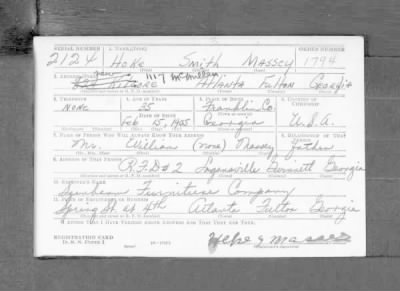 SERIAL NUMBER 1. NAME (Print) ORDER NUMBER
2124 Hoke Smith Massey 1794
(First) (Middle) (Last)
2. ADDRESS (Print)
1117 McMillan Atlanta Fulton Georgia
3. TELEPHONE 4. AGE IN YEARS 5. PLACE OF BIRTH 6. COUNTRY OF CITIZENSHIP
NONE 35 Franklin Co.
DATE OF BIRTH
Feb 15, 1905 Georgia U.S.A.
7. NAME OF PERSON WHO WILL ALWAYS KNOW YOUR ADDRESS 8. RELATIONSHIP OF THAT PERSON
Mr. William (none) Massey Father
(Mr., Mrs., Miss) (First) (Middle) (Last)
9. ADDRESS OF THAT PERSON
R.F.D #2 Loganville Gwinnett Georgia
10. EMPLOYER'S NAME
Furniture Company
11. PLACE OF EMPLOYMENT OR BUSINESS
Spring St. at 4th Atlanta Fulton Georgia
I AFFIRM THAT I HAVE VERIFIED ABOVE ANSWERS AND THAT THEY ARE TRUE.
REGISTRATION CARD
D. S. S. FORM 1 (over) Hoke S Massey